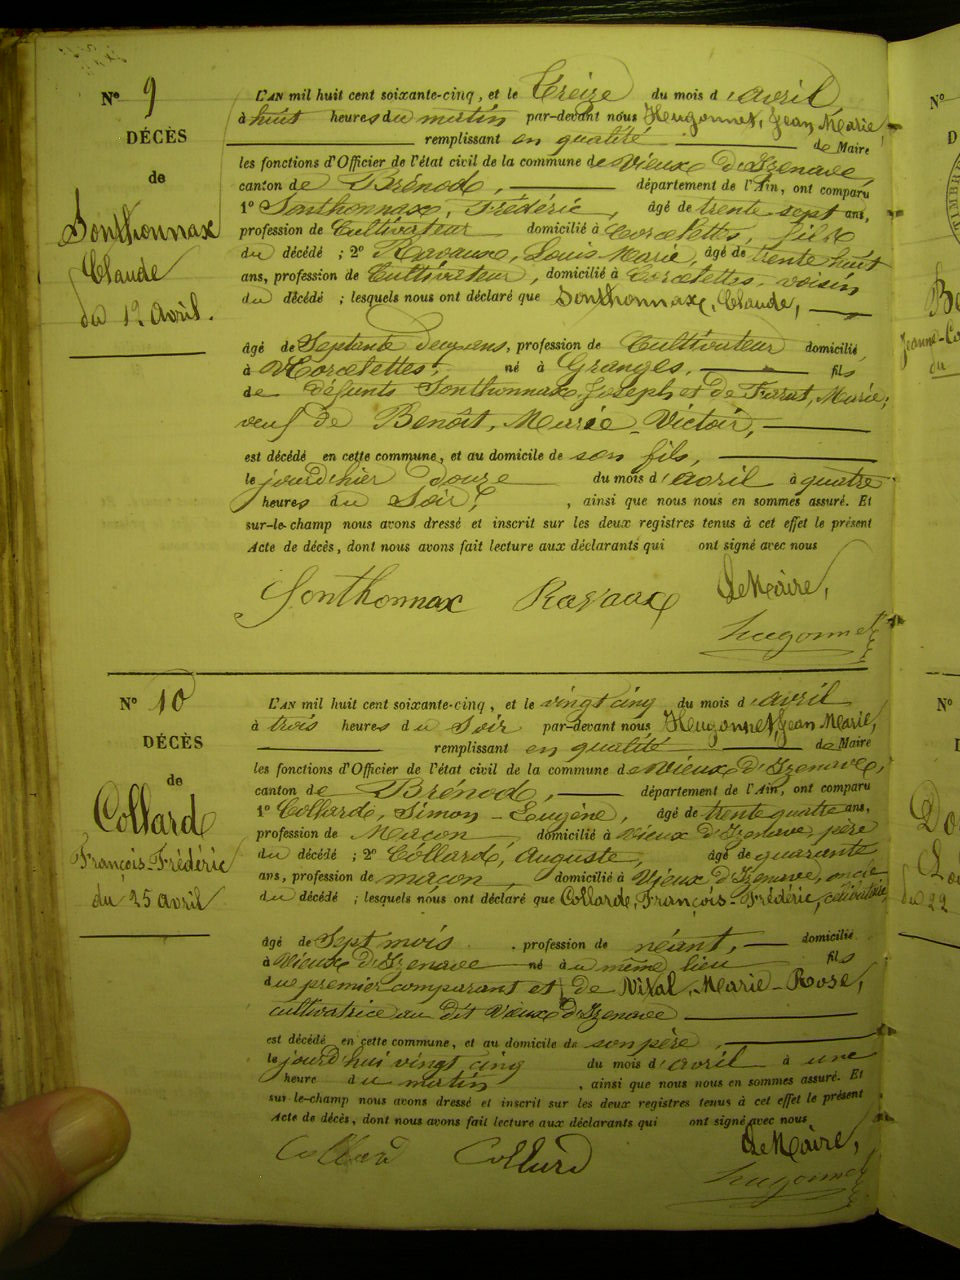 N° 9
DÉCÈS
de
Sonthonnax
Claude
du 12 avril.
L'AN mil huit cent soixante-cinq, et le treize du mois d'avril
à huit heures du matin par-devant nous Hugonnet, Jean Marie
remplissant en qualité de Maire
les fonctions d'Officier de l'état civil de la commune de Vieux d'Izenave,
canton de Brénod, département de l'Ain, ont comparu
1° Sonthonnax, Frédéric, âgé de trente sept ans,
profession de Cultivateur domicilié à Corcelettes, fils
du décédé ; 2° Ravaux, Louis Marie, âgé de trente huit
ans, profession de Cultivateur, domicilié à Corcelettes, voisin
du décédé ; lesquels nous ont déclaré que Sonthonnax, Claude,
âgé de Septante deux ans, profession de Cultivateur domicilié
à Corcelettes, né à Granges, fils
de défunts Sonthonnax, Joseph et de Marie;
veuf de Benoît, Marie Victoir,
est décédé en cette commune, et au domicile de son fils,
le jourd'hier douze du mois d'avril à quatre
heures du Soir, , ainsi que nous nous en sommes assuré. Et
sur-le-champ nous avons dressé et inscrit sur les deux registres tenus à cet effet le présent
Acte de décès, dont nous avons fait lecture aux déclarants qui ont signé avec nous
Sonthonnax Ravaux Le Maire,
hugonnet
N° 10
DÉCÈS
de
Collard
François-Frédéric
du 25 avril
L'AN mil huit cent soixante-cinq, et le vingt cinq du mois d'avril
à trois heures du Soir par-devant nous Hugonnet, Jean Marie,
remplissant en qualité de Maire
les fonctions d'Officier de l'état civil de la commune de Vieux d'Izenave,
canton de Brénod, département de l'Ain, ont comparu
1° Collard, Simon-Eugène, âgé de trente quatre ans,
profession de Maçon domicilié à Vieux d'Izenave, père
du décédé ; 2° Collard, Auguste, âgé de quarante
ans, profession de maçon, domicilié à Vieux d'Izenave, oncle
du décédé ; lesquels nous ont déclaré que Collard, François-Frédéric, célibataire,
âgé de Sept mois . profession de néant, domicilié
à Vieux d'Izenave né au même lieu fils
du premier comparant et de Marie-Rose,
cultivatrice au dit Vieux d'Izenave
est décédé en cette commune, et au domicile de son père,
le jourd'hui vingt cinq du mois d'avril à une
heure du matin , ainsi que nous nous en sommes assuré. Et
sur-le-champ nous avons dressé et inscrit sur les deux registres tenus à cet effet le présent
Acte de décès, dont nous avons fait lecture aux déclarants qui ont signé avec nous
Collard Collard Le Maire,
hugonnet